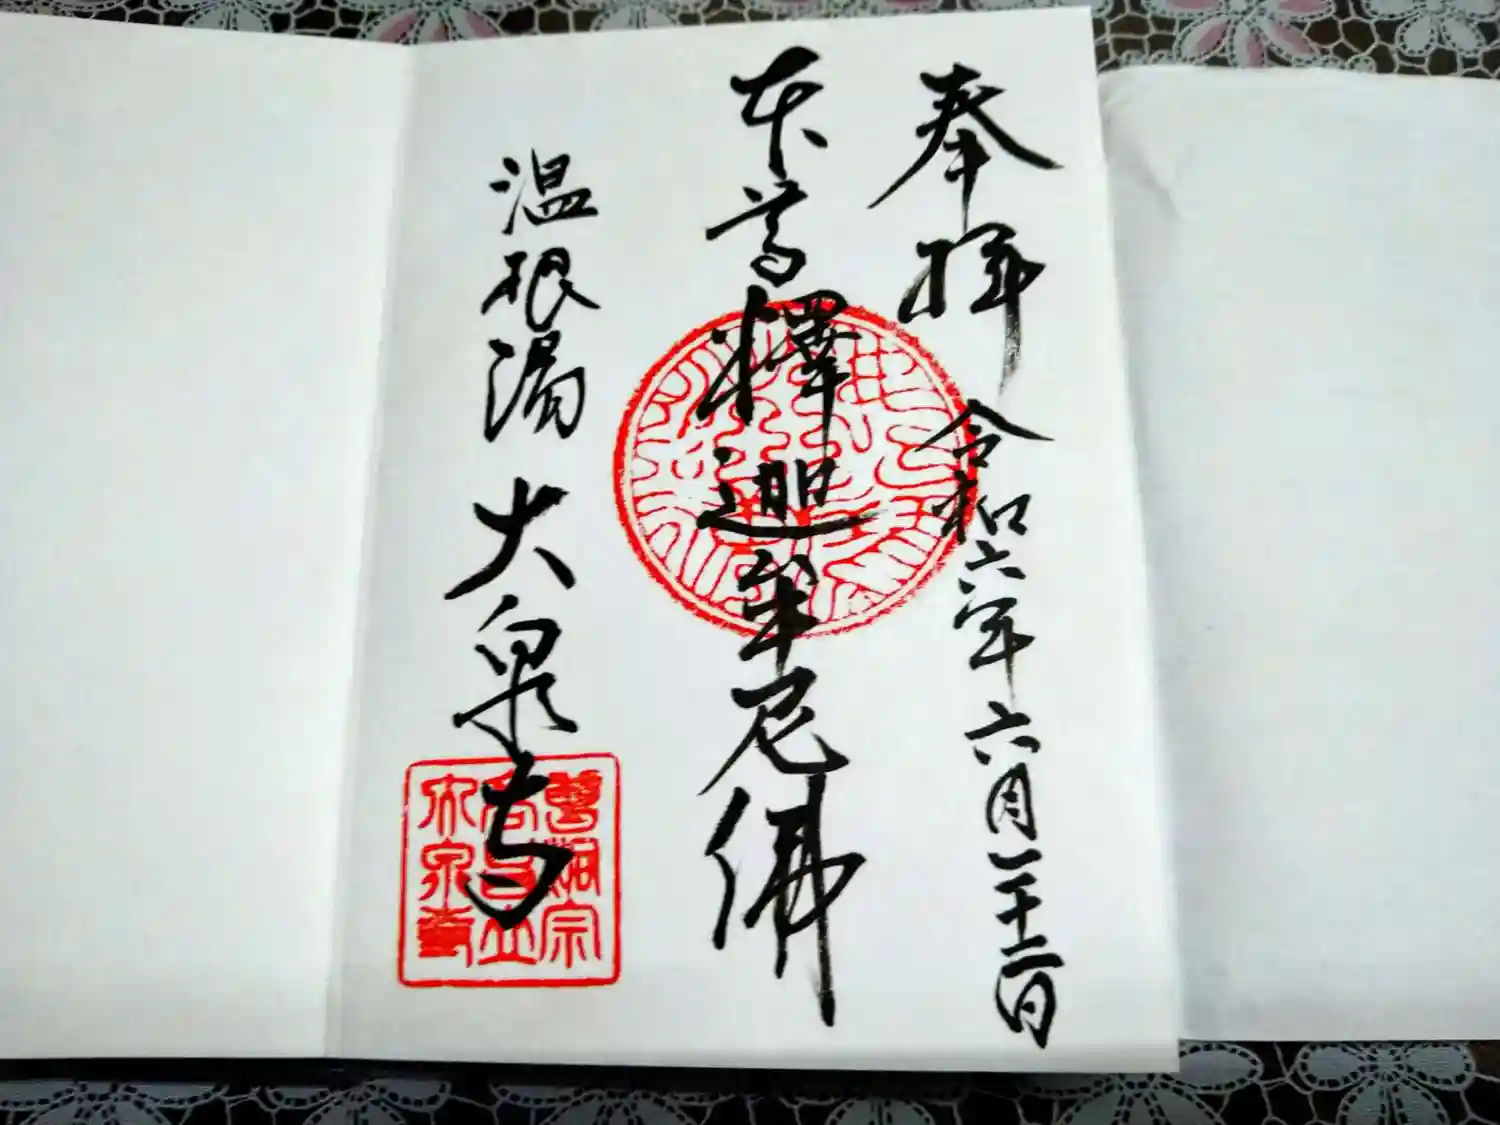 奉拝 令和六年六月二十二日
本尊釋迦牟尼佛
温根湯 大泉寺
曹洞宗
大泉寺